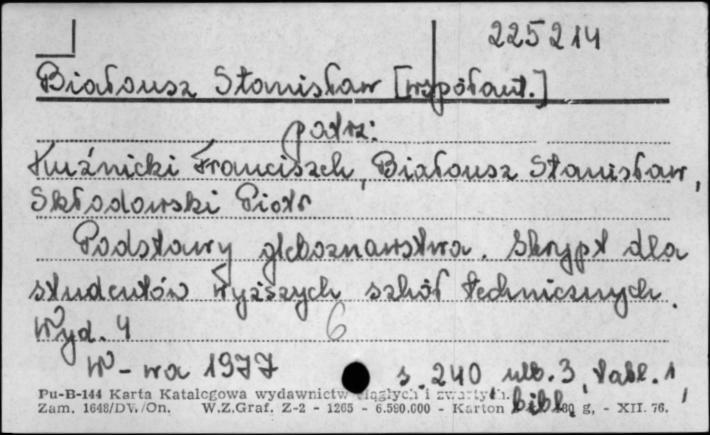 225214
Białousz Stanisław [współaut.]
patrz:
Kuźnicki Franciszek, Białousz Stanisław,
Skłodowski Piotr
Podstawy gleboznawstwa. Skrypt dla
studentów wyższych szkół technicznych.
Wyd. 4 6
W-wa 1977 s. 240 nlb. 3, tabl. 1,
bibl.
Pu-B-144 Karta Katalogowa wydawnictw ciągłych i zwartych.
Zam. 1648/DW./On. W.Z.Graf. Z-2 - 1265 - 6.590.000 - Karton g, - XII. 76.